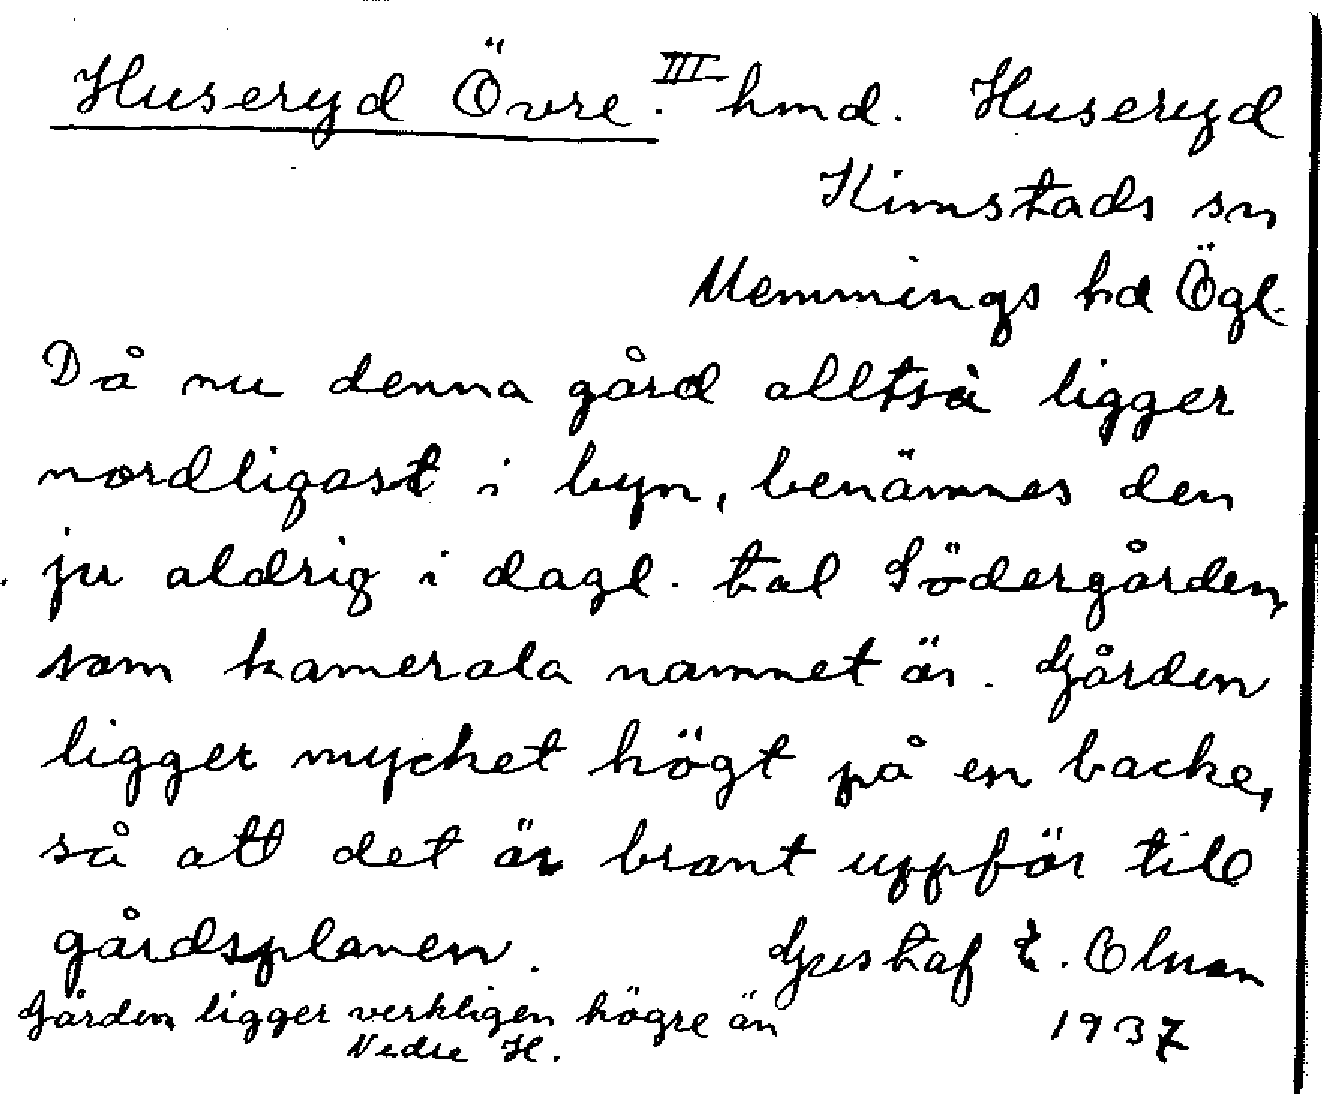 Huseryd Övre. III hmd. Huseryd
Kimstads sn
Memmings hd Ögl.
Då nu denna gård alltså ligger
nordligast i byn, benämnes den
ju aldrig i dagl. tal Södergården,
som kamerala namnet är. Gården
ligger mycket högt på en backe,
så att det är brant uppför till
gårdsplanen. Gustaf E. Olman
Gården ligger verkligen högre än 1937
Nedre H.